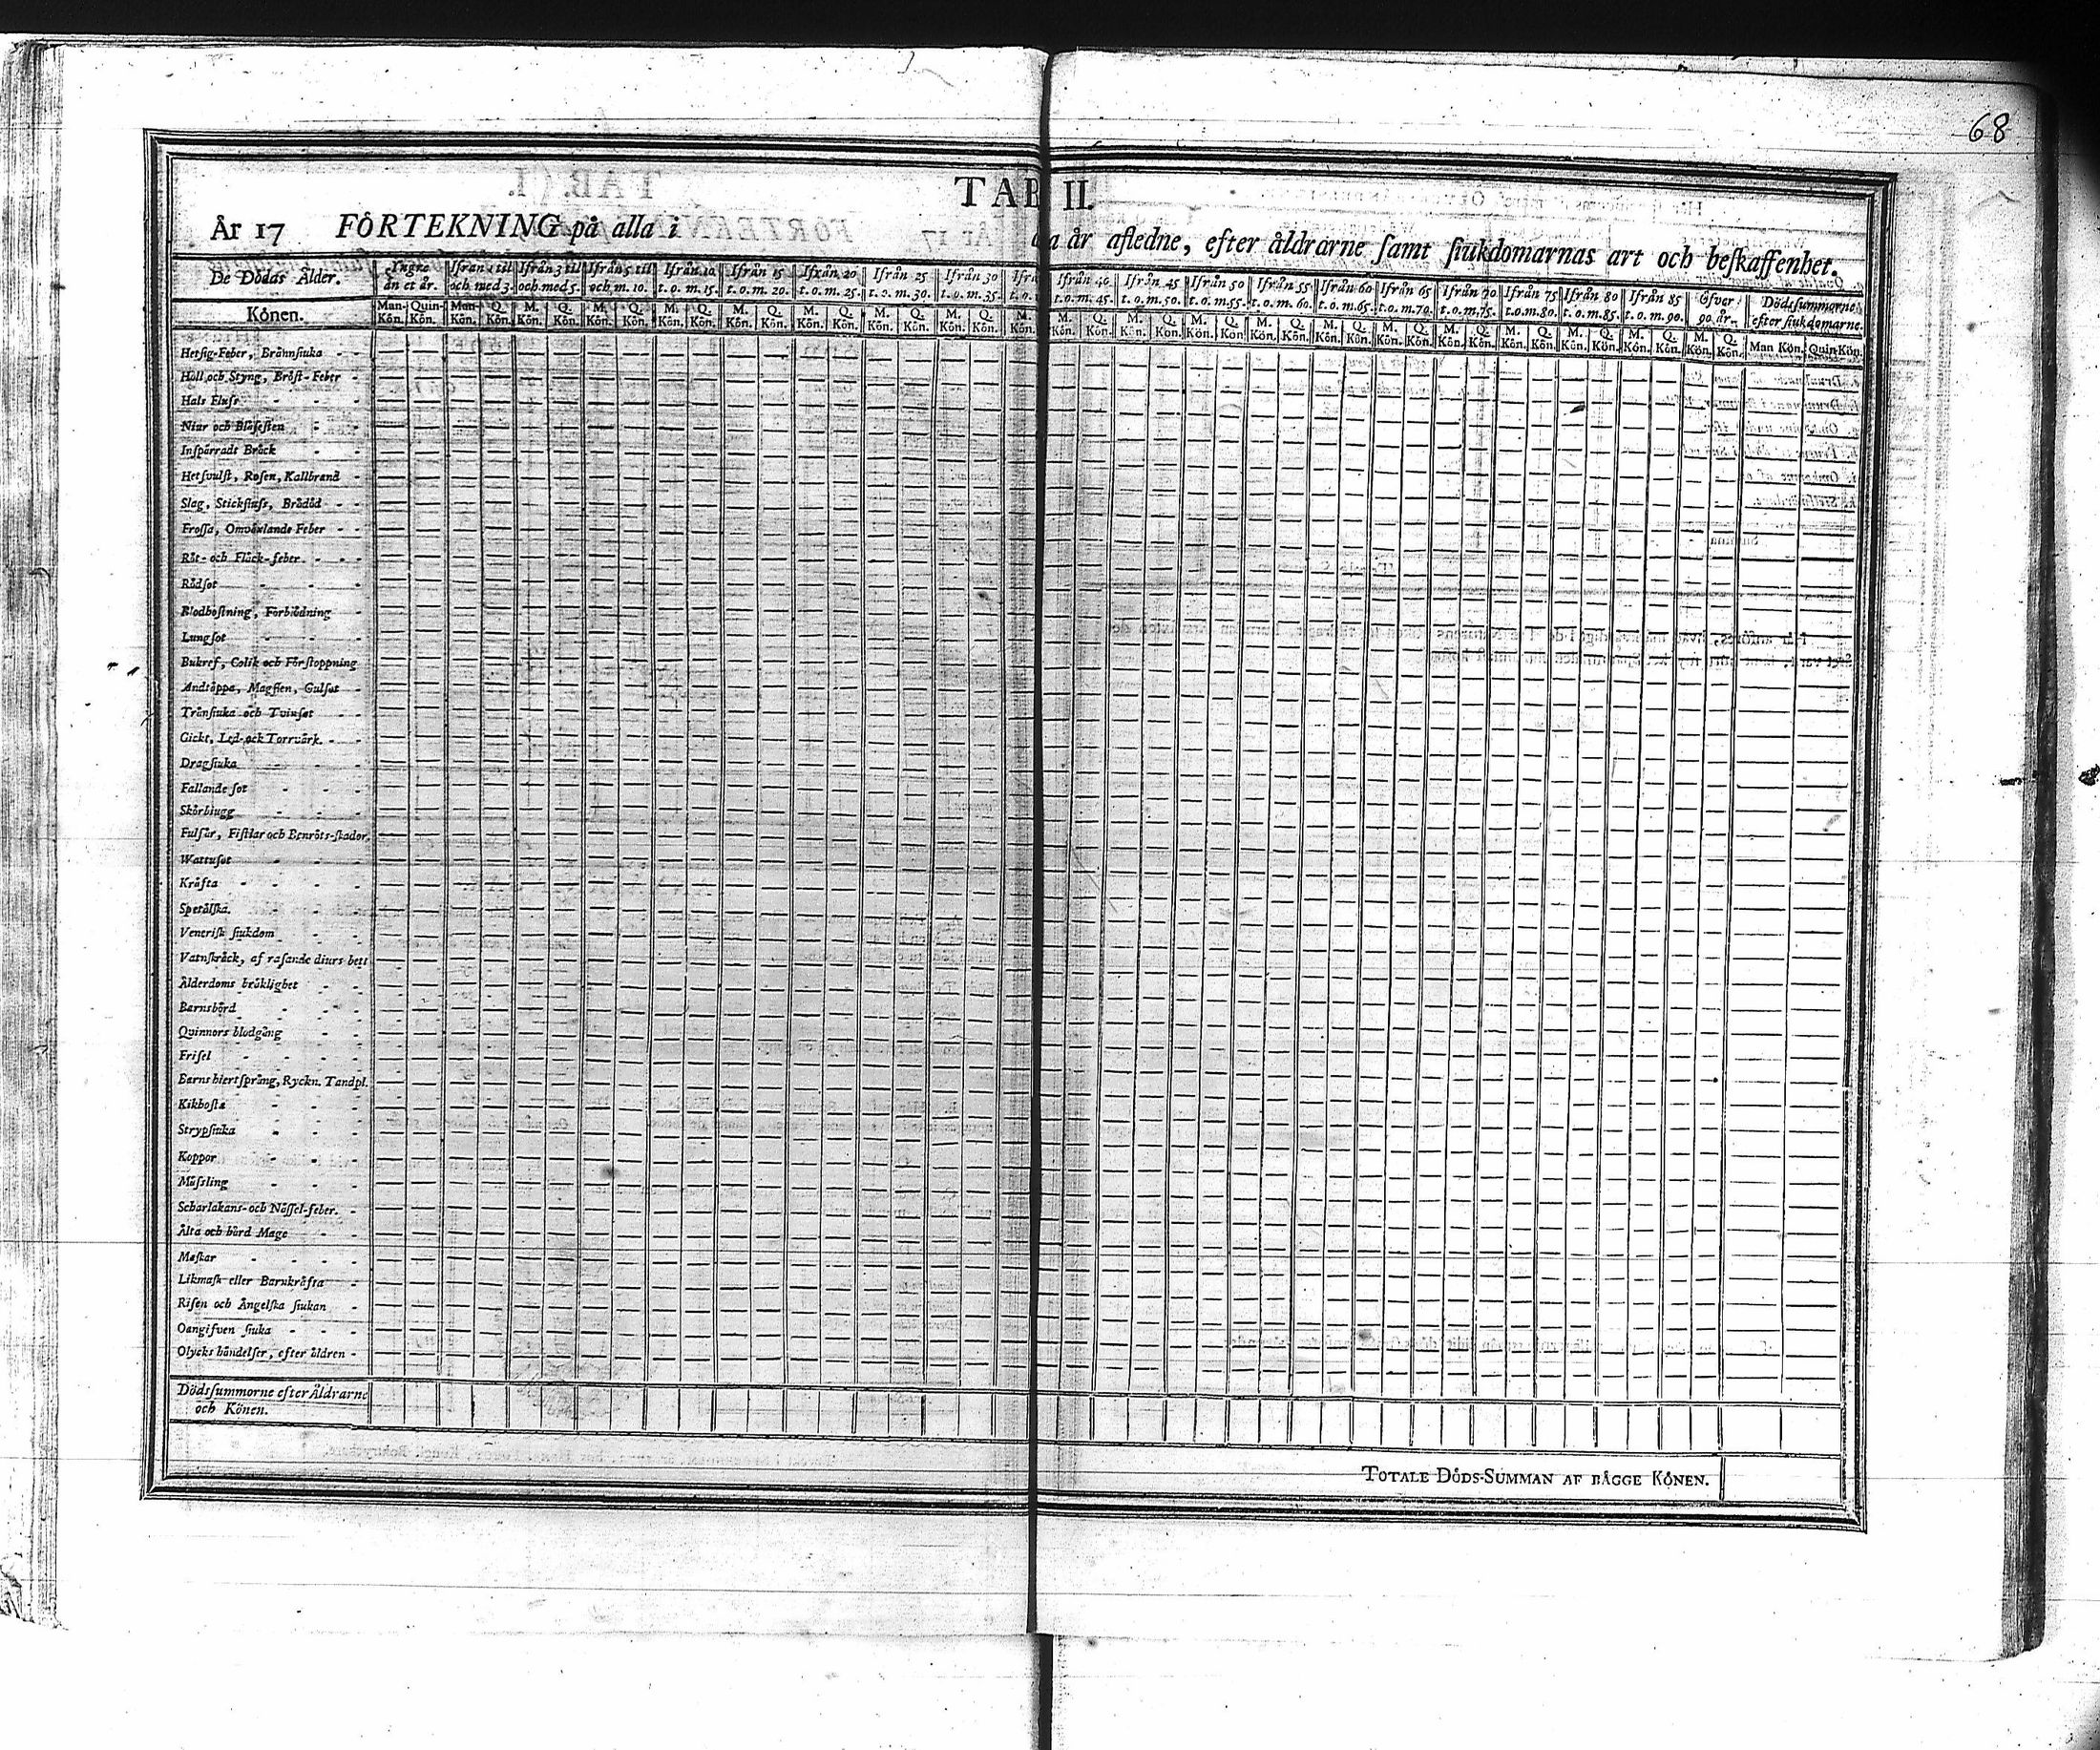 68
TAB II.
År 17 FÖRTEKNING på alla i
år afledne, efter åldrarne samt siukdomarnas art och beskaffenhet.
De Dödas Ålder. Yngre än et år. Ifrån 1 til och med 3. Ifrån 3 til och med 5. Ifrån 5 til och m. 10. Ifrån 10 t. o. m. 15. Ifrån 15 t. o. m. 20. Ifrån 20 t. o. m. 25. Ifrån 25 t. o. m. 30. Ifrån 30 t. o. m. 35. Ifrån 40 t. o. m. 45. Ifrån 45 t. o. m. 50. Ifrån 50 t. o. m. 55. Ifrån 55 t. o. m. 60. Ifrån 60 t. o. m. 65. Ifrån 65 t. o. m. 70. Ifrån 70 t. o. m. 75. Ifrån 75 t. o. m. 80. Ifrån 80 t. o. m. 85. Ifrån 85 t. o. m. 90. Öfver 90 år. Dödssummorne efter siukdomarne.
Könen. Man-Kön. Quin-Kön. Man-Kön. Q. Kön. M. Kön. Q. Kön. M. Kön. Q. Kön. M. Kön. Q. Kön. M. Kön. Q. Kön. M. Kön. Q. Kön. M. Kön. Q. Kön. M. Kön. Q. Kön. M. Kön. M. Kön. Q. Kön. M. Kön. Q. Kön. M. Kön. Q. Kön. M. Kön. Q. Kön. M. Kön. Q. Kön. M. Kön. Q. Kön. M. Kön. Q. Kön. M. Kön. Q. Kön. M. Kön. Q. Kön. M. Kön. Q. Kön. M. Kön. Q. Kön. Man Kön. Quin Kön.
Hetsig-Feber, Brännsiuka
Håll och Styng, Bröst-Feber
Hals Fluss
Niur och Blåsesten
Inspärradt Bråck
Hetsvulst, Rosen, Kallbrand
Slag, Stickfluss, Brådöd
Frossa, Omväxlande Feber
Röt- och Fläck-feber
Rödsot
Blodhostning, Förblödning
Lungsot
Bukref, Colik och Förstoppning
Andtäppa, Magsien, Gulsot
Trånsiuka och Tvinsot
Gickt, Led- och Torrvärk
Dragsiuka
Fallande sot
Skörbiugg
Fulsår, Fistlar och Benröts-skador.
Wattusot
Kräfta
Spetälska
Venerisk siukdom
Vatnskräck, af rasande diurs bett
Ålderdoms bräklighet
Barnsbörd
Qvinnors blodgång
Frisel
Barns hiertsprång, Ryckn. Tandpl.
Kikhosta
Strypsiuka
Koppor
Mässling
Scharlakans- och Nässel-feber.
Älta och hård Mage
Maskar
Likmask eller Barnkräfta
Risen och Ängelska siukan
Oangifven siuka
Olycks händelser, efter åldren
Dödssummorne efter Åldrarne
och Könen.
TOTALE DÖDS-SUMMAN AF BÄGGE KÖNEN.